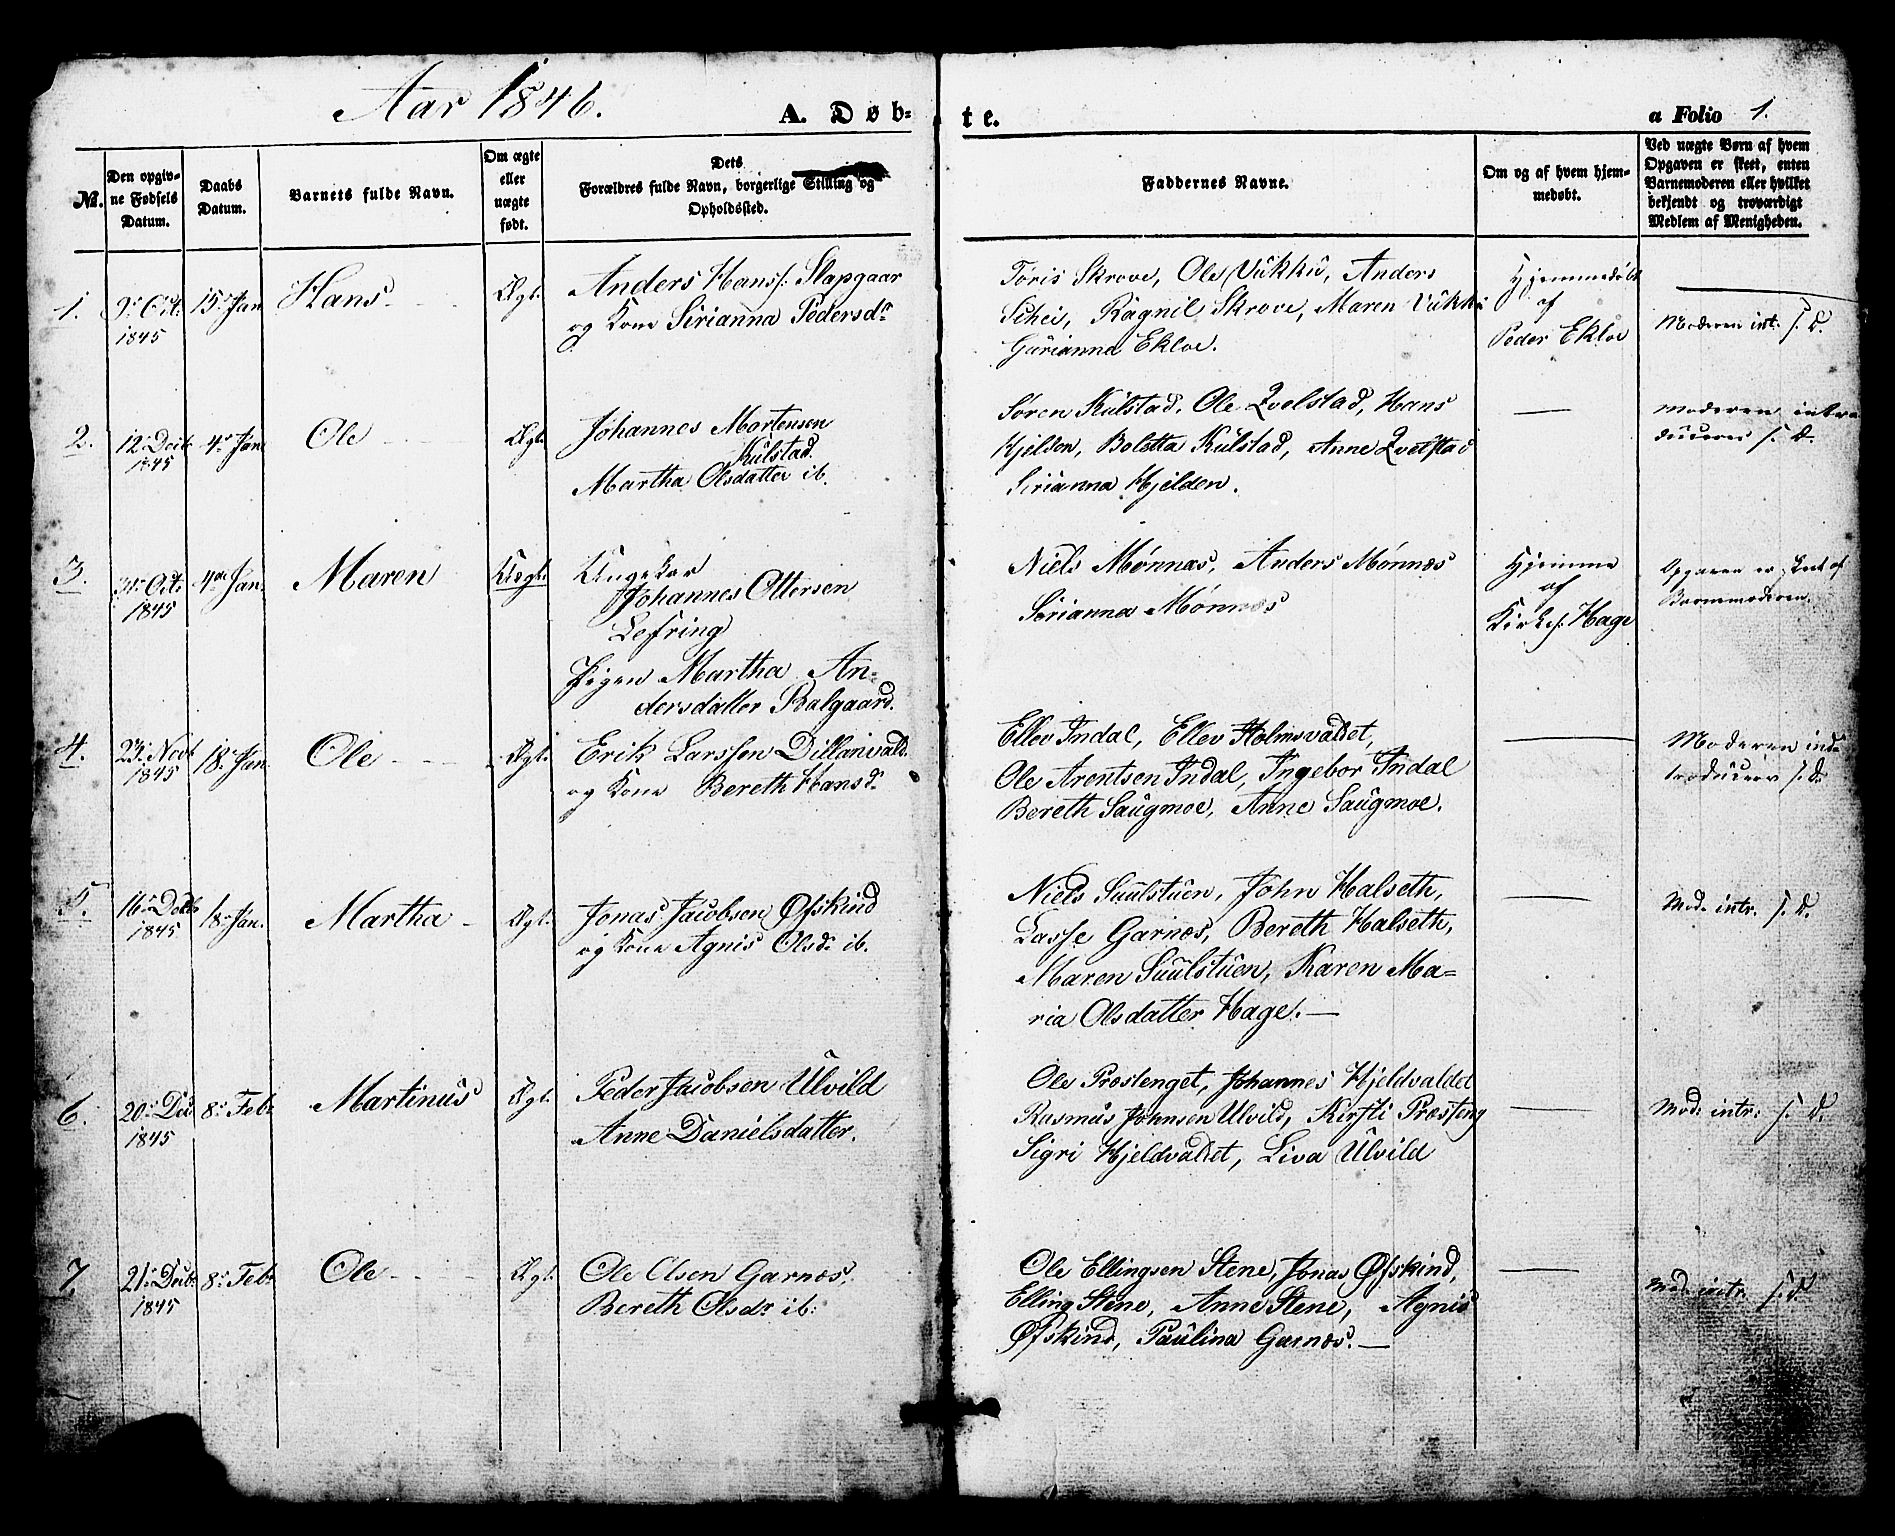 Aar 1846.
A. Døb-te.
a Folio 1.
No.
Den opgiv-
ne Fødsels
Datum.
Daabs
Datum.
Barnets fulde Navn.
Om ægte
eller
uægte
født.
Dets
Forældres fulde Navn, borgerlige Stilling og
Opholdssted.
Faddernes Navne.
Om og af hvem hjem-
medøbt.
Ved uægte Børn af hvem
Opgaven er skeet, enten
Barnemoderen eller hvilket
bekjendt og troværdigt
Medlem af Menigheden.
1.
9. Oct.
1845
15. Jan
Hans
Ægt.
Anders Hans. Slapgaar
og Kone Sirianna Pedersdr
Toris Skrove, Ole Vukku, Anders
Schei, Ragnil Skrove, Maren Vukku
Gurianna Ekloe.
Hjemmedøbt
af
Peder Ekloe
Moderen int. s. D.
2.
12. Decb
1845
4. Jan
Ole
Ægt.
Johannes Mortensen
Kulstad.
Martha Olsdatter ib.
Søren Kulstad, Ole Qvelstad, Hans
Hjelden, Boletta Kulstad, Anne Qvelstad
Sirianna Hjelden.
Moderen intro
duceres s. D.
3.
31. Oct.
1845
4de Jan.
Maren
Uægt.
Ungekar
Johannes Ottersen
Lefring
Pigen Martha An-
dersdatter Balgaard.
Niels Mønnæs, Anders Mønnæs
Serianna Mønnæs
Hjemme
af
Kirkes. Hage
Opgaven er skeet af
Barnemoderen.
4.
23. Novb
1845
18. Jan
Ole
Ægt.
Erik Larssen Dillanvald.
og Kone Bereth Hansd.
Ellev Indal, Ellev Holmsvaldet,
Ole Arentsen Indal, Ingebor Indal
Bereth Saugmoe, Anne Saugmoe.
Moderen ind-
troducers s. D.
5.
16. Decb
1845
18. Jan.
Martha
Ægt.
Jonas Jacobsen Øfskind
og Kone Agnis Olsd. ib.
Niels Suulstuen, John Halseth,
Lasse Garnæs, Bereth Halseth,
Maren Suulstuen, Karen Ma-
ria Olsdatter Hage.
Mod. intr. s. D.
6.
20. Dec.
1845
8. Febr
Martinus
Ægt.
Peder Jacobsen Ulvild
Anne Danielsdatter.
Ole Prostenget, Johannes Hjeldvaldet
Rasmus Johnsen Ulvild, Kirsti Præsteng
Sigri Hjeldvaldet, Liva Ulvild
Mod. intr. s. D.
7.
21. Decb.
1845
8. Febr
Ole
Ægt.
Ole Olsen Garnæs.
Bereth Olsdr ib.
Ole Ellingsen Stene, Jonas Øfskind,
Elling Stene, Anne Stene, Agnis
Øfskind, Paulina Garnæs.
Mod. intr. s. D.